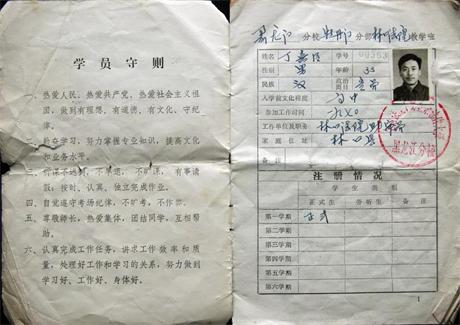 学员守则
一、热爱人民、热爱共产党、热爱社会主义祖
国,做到有理想、有道德、有文化、守纪
律。
勤奋学习,努力掌握专业知识,提高文化
和业务水平。
不迟到,不早退,不旷课,有事请
假;按时、认真、独立完成作业。
四、自觉遵守考场纪律,不旷考,不作弊。
五、尊敬师长,热爱集体,团结同学,互相帮
助。
六、认真完成工作任务,讲求工作效率和质
量,处理好工作和学习的关系,努力做到
学习好、工作好、身体好。
黑龙江 分校 牡丹江 分部 林口法院 教学班
姓名 丁 学号
性别 男 年龄 35
民族 汉 政治面目 党员
入学前文化程度 高中
参加工作时间
工作单位及职务 林口法院
家庭住址 林口县
备注
黑龙江分校
注册情况
学生类别
正式生 旁听生 备注
第一学期 正式
第二学期
第三学期
第四学期
第五学期
第六学期
1